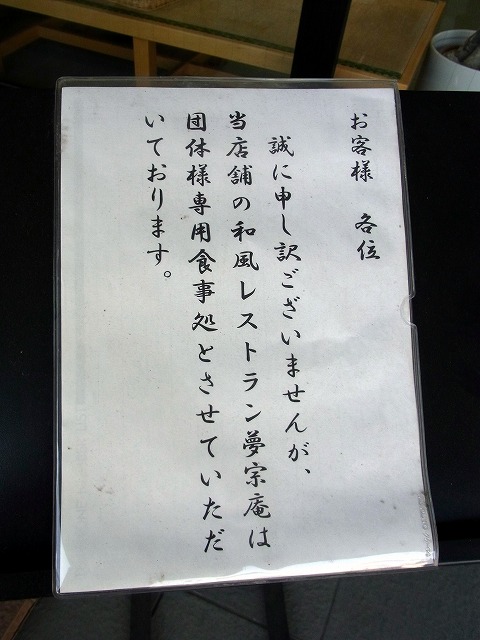 お客様　各位
誠に申し訳ございませんが、
当店舗の和風レストラン夢宗庵は
団体様専用食事処とさせていただ
いております。